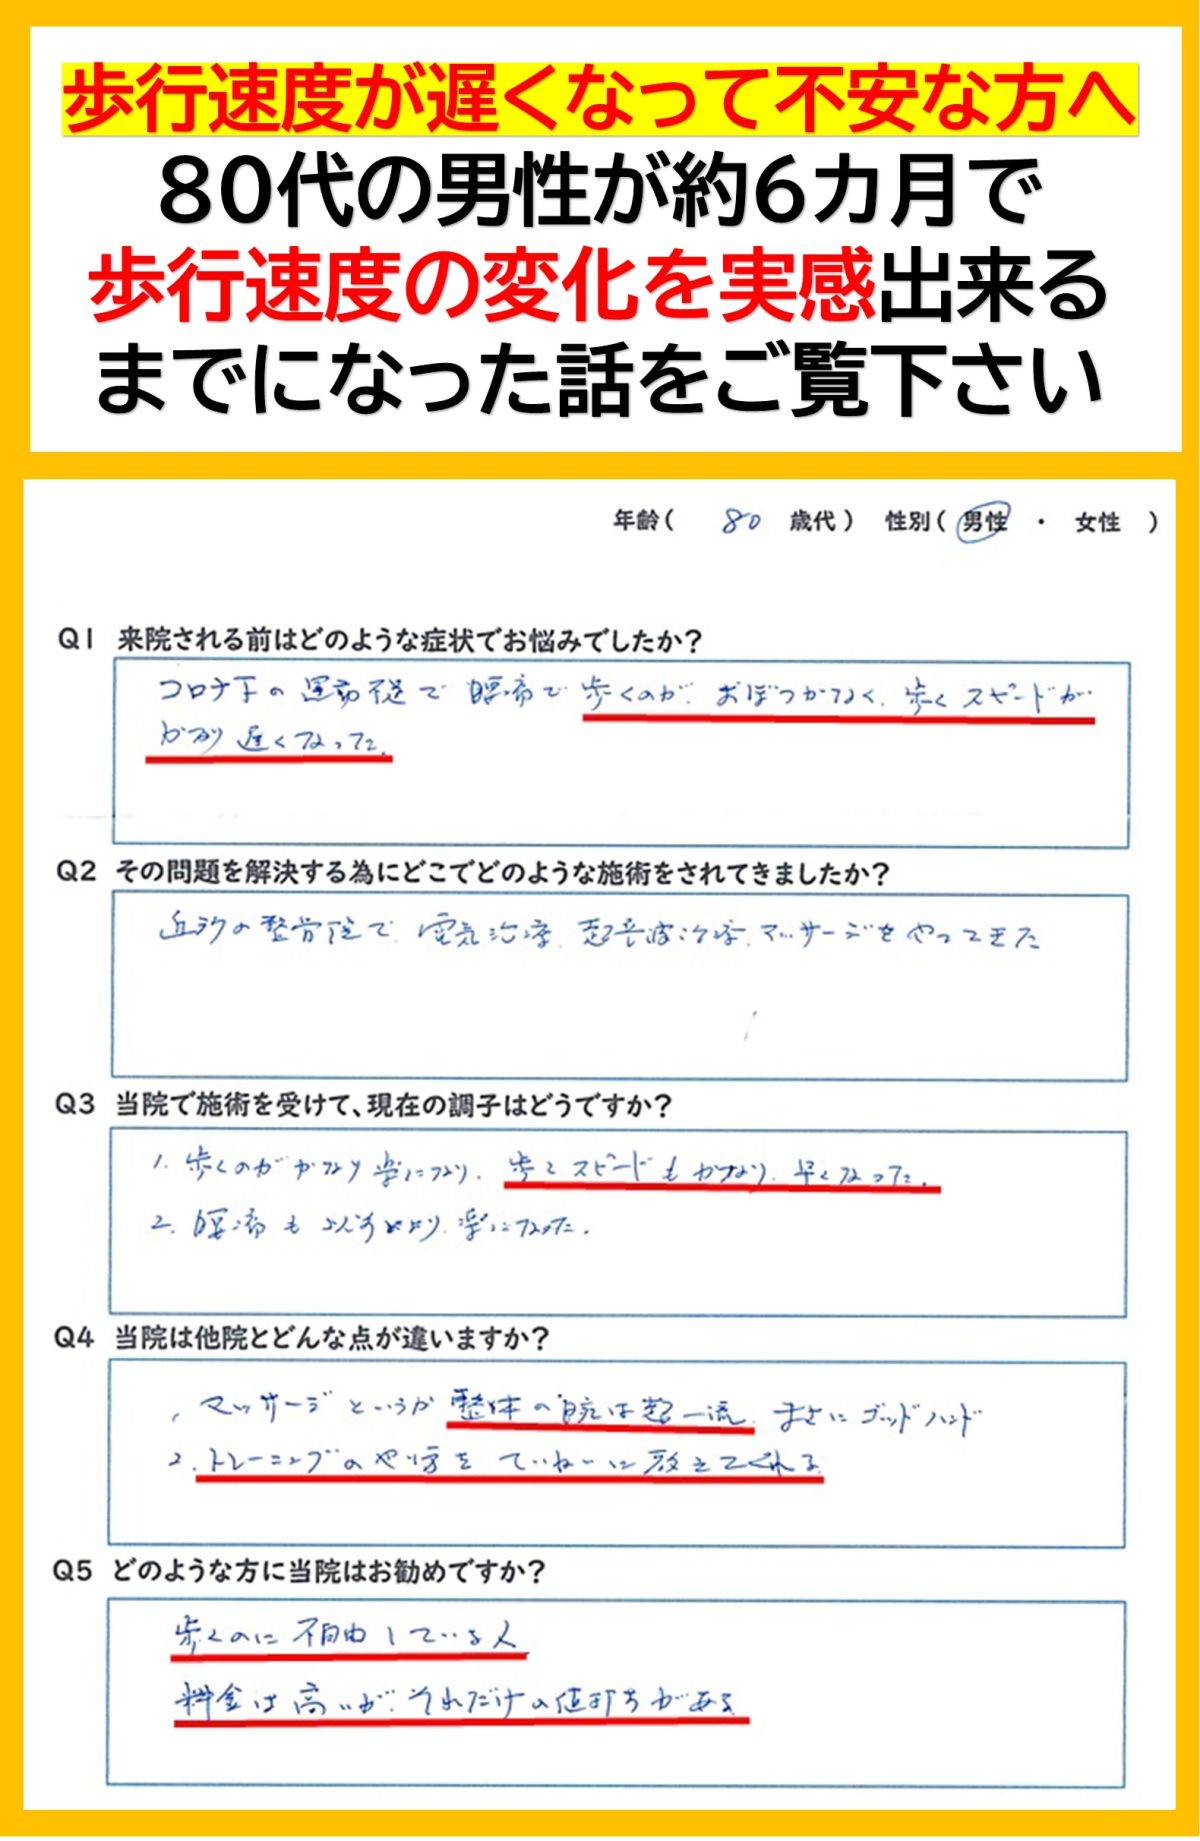 歩行速度が遅くなって不安な方へ
80代の男性が約6カ月で
歩行速度の変化を実感出来る
までになった話をご覧下さい
年齢( 80 歳代) 性別( 男性 ・ 女性 )
Q1 来院される前はどのような症状でお悩みでしたか?
コロナ下の運動不足で腰痛で歩くのが、おぼつかなく、歩くスピードが
かなり遅くなった。
Q2 その問題を解決する為にどこでどのような施術をされてきましたか?
近所の整骨院で、電気治療、超音波治療、マッサージをやってきた
Q3 当院で施術を受けて、現在の調子はどうですか?
1. 歩くのがかなり楽になり、歩くスピードもかなり、早くなった。
2. 腰痛も以前より、楽になった。
Q4 当院は他院とどんな点が違いますか?
、マッサージというか整体の腕は超一流、まさにゴッドハンド
2. トレーニングのやり方をていねいに教えてくれる
Q5 どのような方に当院はお勧めですか?
歩くのに不自由している人
料金は高いが、それだけの値打ちがある